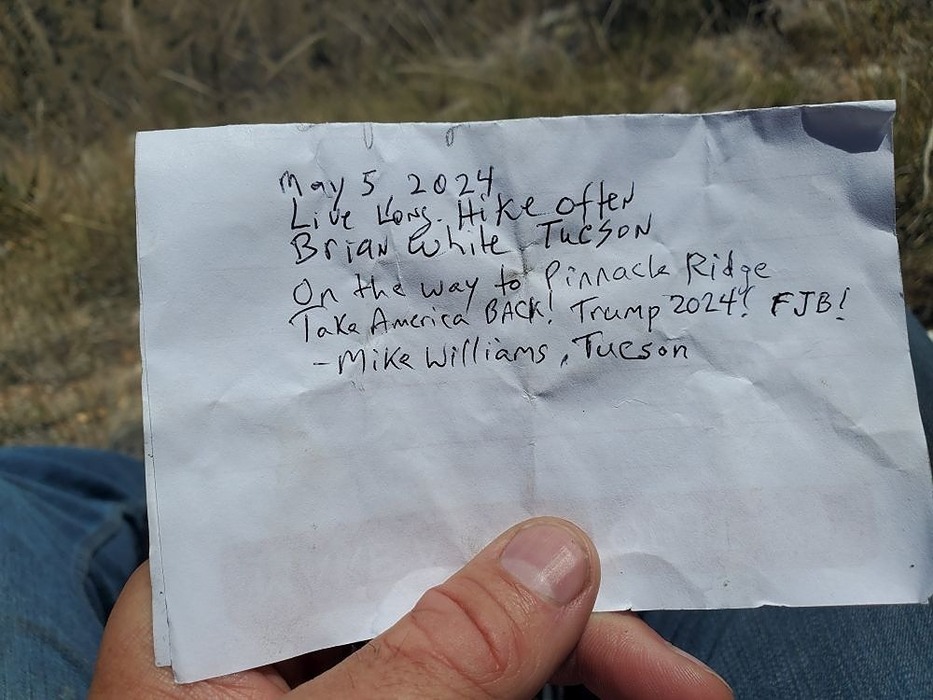 May 5 2024
Live Long. Hike often
Brian White Tucson
On the way to Pinnacle Ridge
Take America BACK! Trump 2024! FJB!
-Mike Williams, Tucson